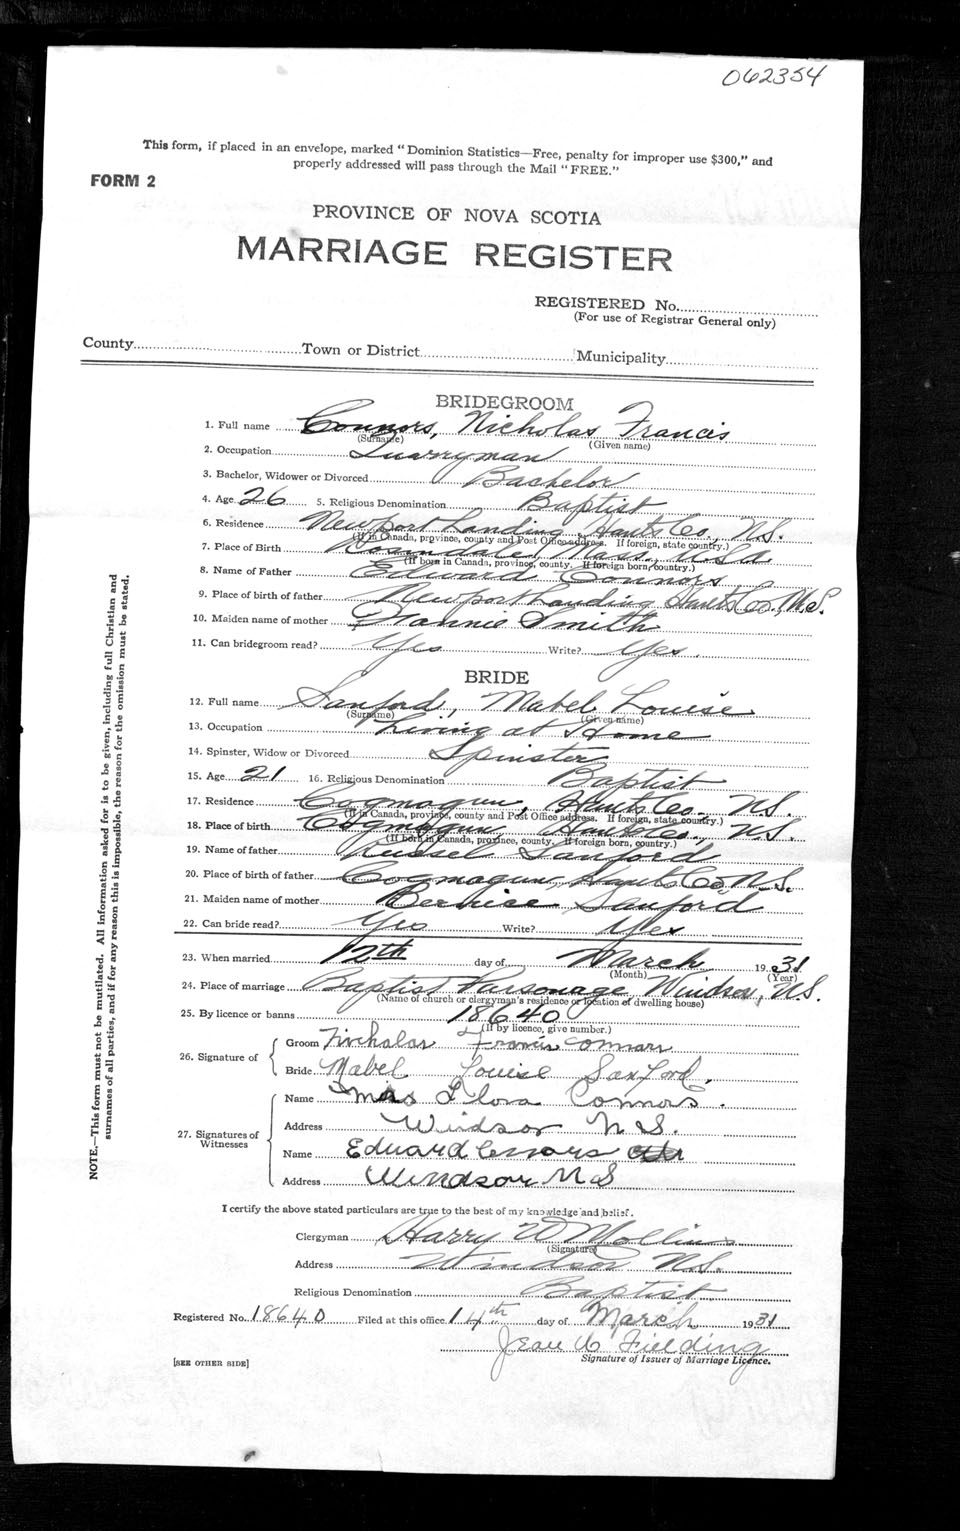 062354
This form, if placed in an envelope, marked "Dominion Statistics—Free, penalty for improper use $300," and
properly addressed will pass through the Mail "FREE."
FORM 2
PROVINCE OF NOVA SCOTIA
MARRIAGE REGISTER
REGISTERED No.
(For use of Registrar General only)
County Town or District Municipality
BRIDEGROOM
1. Full name Connors, Nicholas Francis
(Surname) (Given name)
2. Occupation Quarryman
3. Bachelor, Widower or Divorced Bachelor
4. Age 26 5. Religious Denomination Baptist
6. Residence Newport Landing Hants Co., N.S.
(If in Canada, province, county and Post Office address. If foreign, state country.)
7. Place of Birth Mass, USA
(If born in Canada, province, county. If foreign born, country.)
8. Name of Father Edward Connors
9. Place of birth of father Newport Landing Hants Co., N.S.
10. Maiden name of mother Smith
11. Can bridegroom read? Yes Write? Yes.
BRIDE
12. Full name Sanford, Mabel Louise
(Surname) (Given name)
13. Occupation Living at Home
14. Spinster, Widow or Divorced Spinster
15. Age 21 16. Religious Denomination Baptist
17. Residence Cogmagun, Hants Co., N.S.
(If in Canada, province, county and Post Office address. If foreign, state country.)
18. Place of birth Cogmagun, Hants Co., N.S.
(If born in Canada, province, county. If foreign born, country.)
19. Name of father Russel Sanford
20. Place of birth of father Cogmagun Hants Co, N.S.
21. Maiden name of mother Bernice Sanford
22. Can bride read? Yes Write? Yes
23. When married 12th day of March 1931
(Month) (Year)
24. Place of marriage Baptist Parsonage Windsor, N.S.
(Name of church or clergyman's residence or location of dwelling house)
25. By licence or banns 18640
(If by licence, give number.)
26. Signature of
Groom Francis Connors
Bride Mabel Louise Sanford.
27. Signatures of Witnesses
Name Mrs Flora Connors.
Address Windsor N.S.
Name Edward Connors
Address Windsor N S
I certify the above stated particulars are true to the best of my knowledge and belief.
Clergyman Harry W Mollins
(Signature)
Address Windsor N.S.
Religious Denomination Baptist
Registered No. 18640 Filed at this office 14th day of March 1931
Fielding
[SEE OTHER SIDE] Signature of Issuer of Marriage Licence.
NOTE.—This form must not be mutilated. All information asked for is to be given, including full Christian and
surnames of all parties, and if for any reason this is impossible, the reason for the omission must be stated.